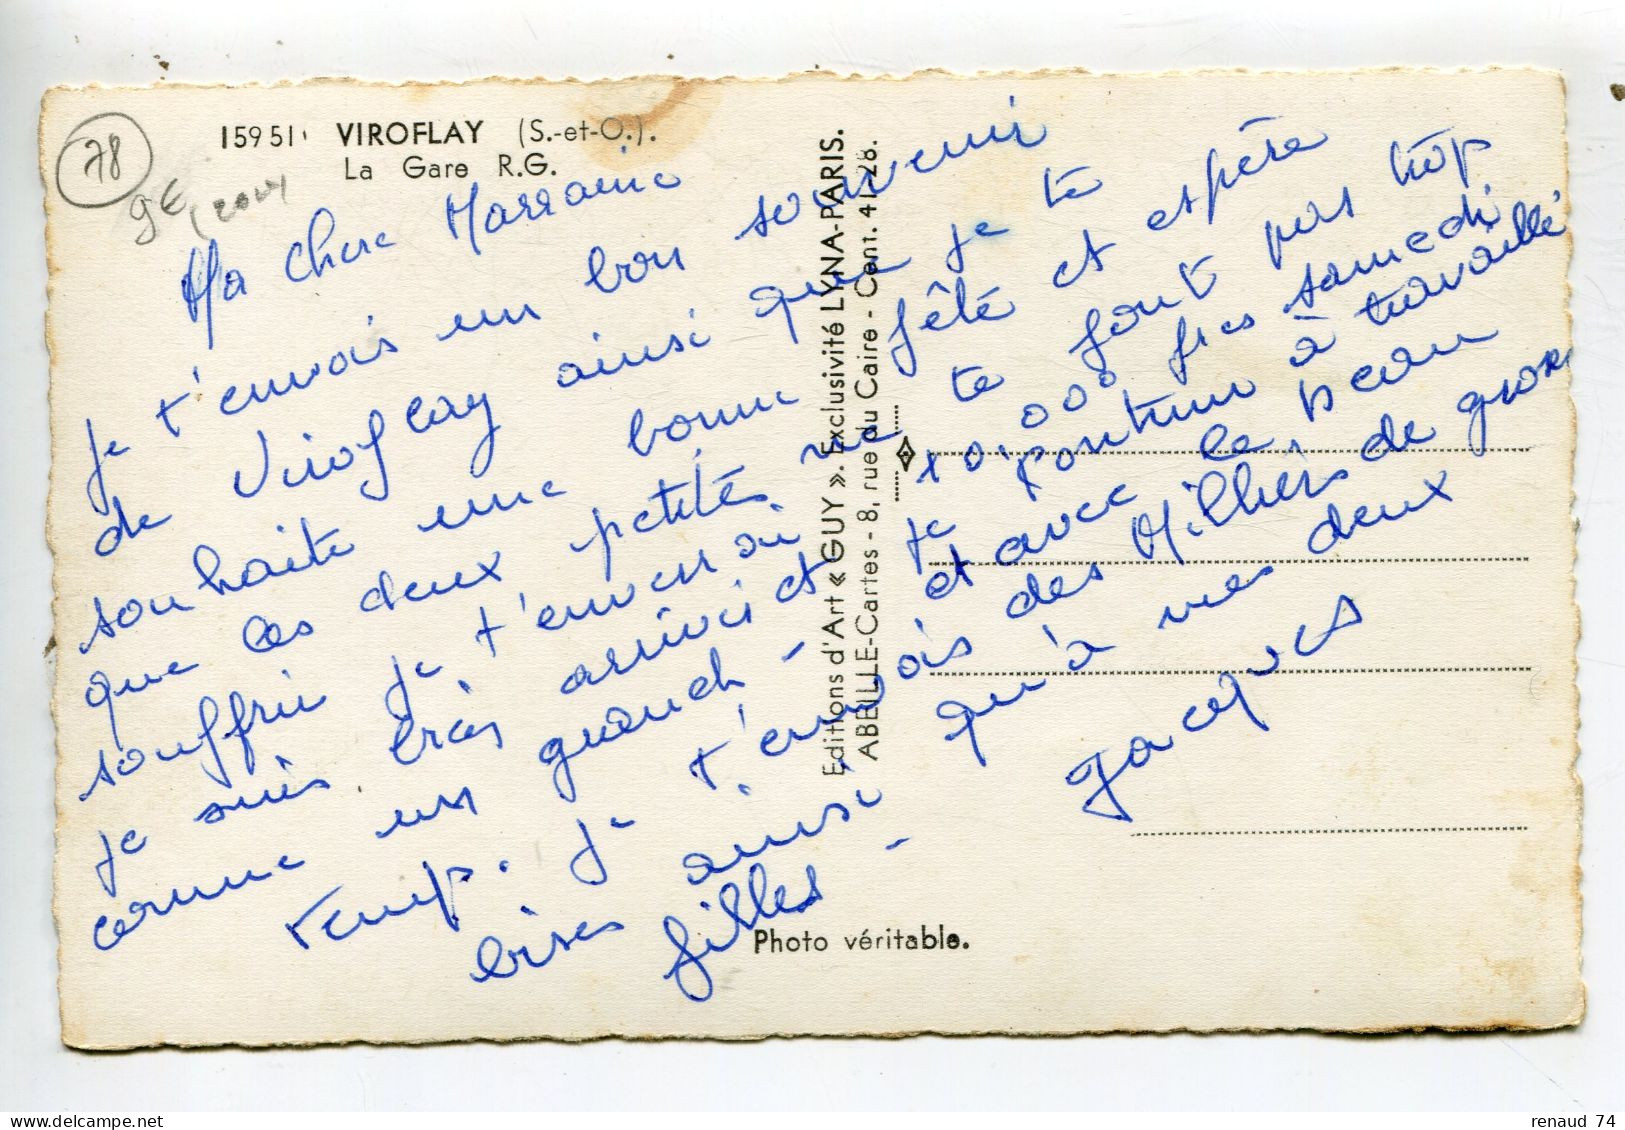 15951 VIROFLAY (S.-et-O.).
La Gare R.G.
78
Ma chere Marraine
Je t'envois un bon souvenir
de Viroflay ainsi que je te
souhaite une bonne fêté et espère
que ces deux petités ne te font pas trop
souffrir je t'enverrai 10.000 frcs samedi
je suis bras arrivés et je
comme un grand - et avec le beau
temp. je t'envois des Milliers de gros
bises ainsi qu'à mes deux
filles -
Jacques
Editions d'Art « GUY ». Exclusivité LYNA-PARIS.
ABEILLE-Cartes - 8, rue du Caire - Cent. 41-28.
Photo véritable.
renaud 74